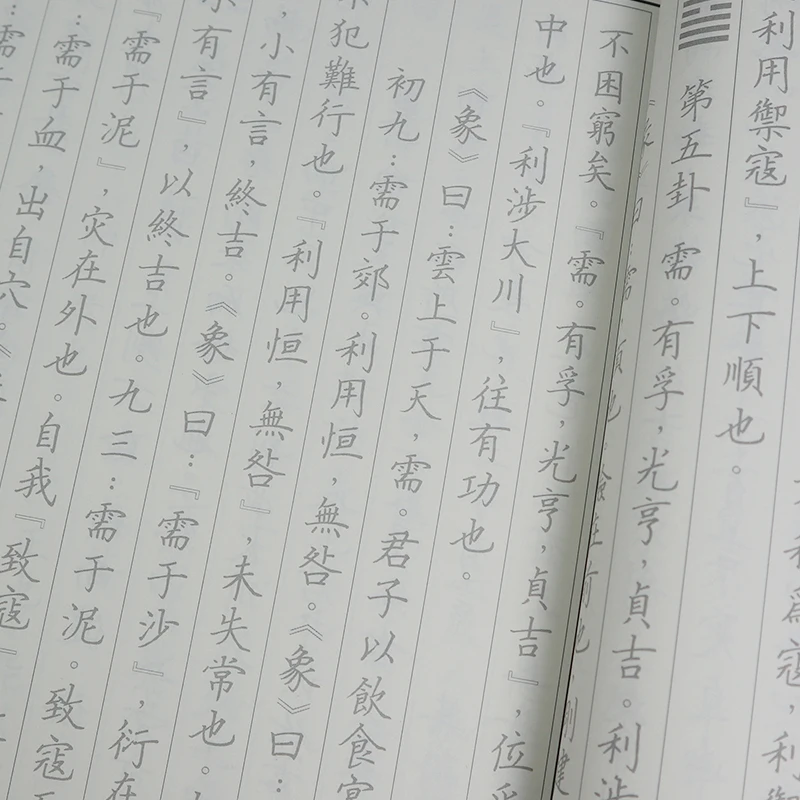 為寇，利
利用禦寇』，上下順也。
第五卦　需。有孚，光亨，貞吉。利涉
曰：需，須也，險在前也，剛健
不困窮矣。『需。有孚，光亨，貞吉』，位乎
中也。『利涉大川』，往有功也。
《象》曰：雲上于天，需。君子以飲食宴
初九：需于郊。利用恒，無咎。《象》曰：
不犯難行也。『利用恒，無咎』，未失常也。
，小有言，終吉。《象》曰：『需于沙』，衍在
小有言』，以終吉也。九三：需于泥。致寇
『需于泥』，灾在外也。自我『致寇』
：需于血，出自穴。
需